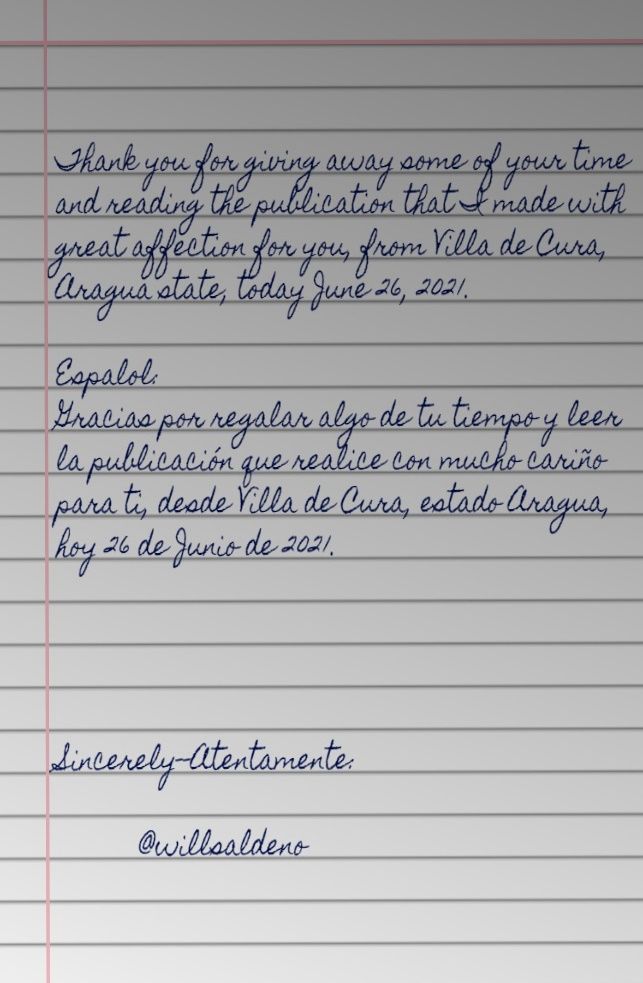 Thank you for giving away some of your time
and reading the publication that I made with
great affection for you, from Villa de Cura,
Aragua state, today June 26, 2021.
Espalol:
Gracias por regalar algo de tu tiempo y leer
la publicación que realice con mucho cariño
para ti, desde Villa de Cura, estado Aragua,
hoy 26 de Junio de 2021.
Sincerely-Atentamente:
@willsaldeno